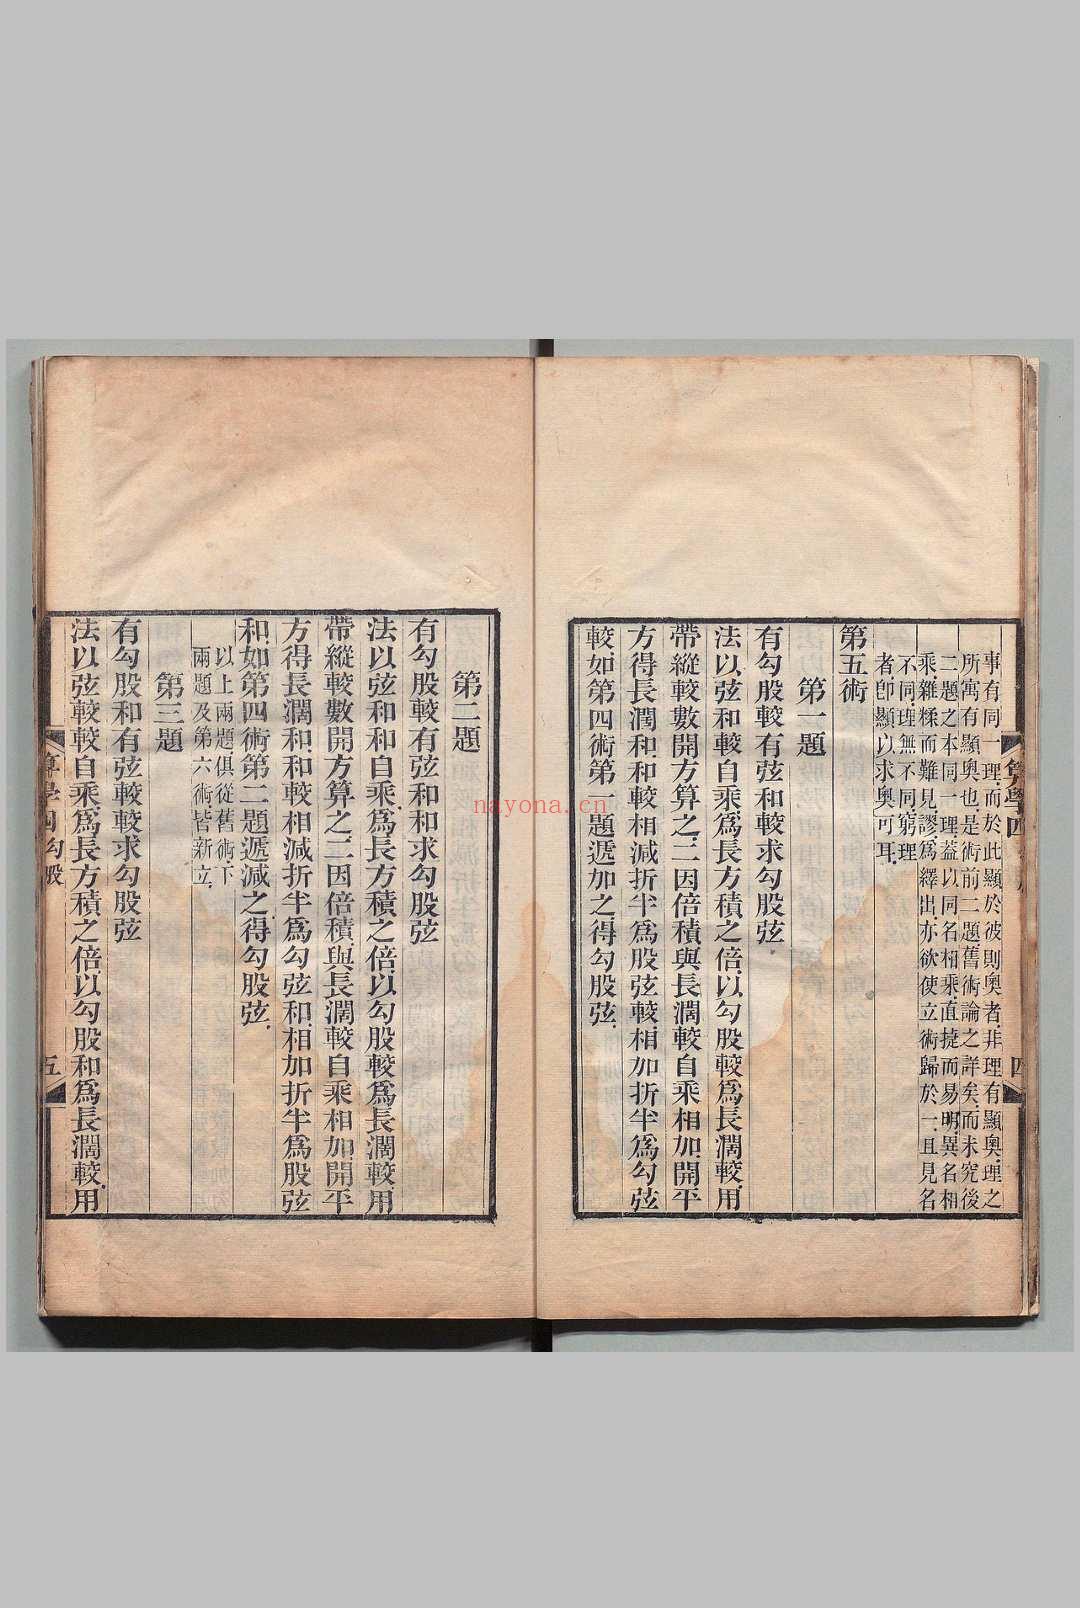 事有同一理而於此顯於彼則奧者非理有顯奧理之
所寓有顯奧也是術前二題舊術論之詳矣而未究後
二題之本同一理葢以同名相乘直捷而易明異名相
乘雜糅而難見謬爲繹出亦欲使立術歸於一且見名
不同理無不同窮理
者卽顯以求奧可耳
第五術
第一題
有勾股較有弦和較求勾股弦
法以弦和較自乘爲長方積之倍以勾股較爲長濶較用
帶縱較數開方算之二因倍積與長濶較自乘相加開平
方得長濶和和較相減折半爲股弦較相加折半爲勾弦
較如第四術第一題遞加之得勾股弦
第二題
有勾股較有弦和和求勾股弦
法以弦和和自乘爲長方積之倍以勾股較爲長濶較用
帶縱較數開方算之二因倍積與長濶較自乘相加開平
方得長濶和和較相減折半爲勾弦和相加折半爲股弦
和如第四術第二題遞減之得勾股弦
以上兩題俱從舊術下
兩題及第六術皆新立
第三題
有勾股和有弦較較求勾股弦
法以弦較較自乘爲長方積之倍以勾股和爲長濶較用
算學四
四
勾股
五
nayona.cn